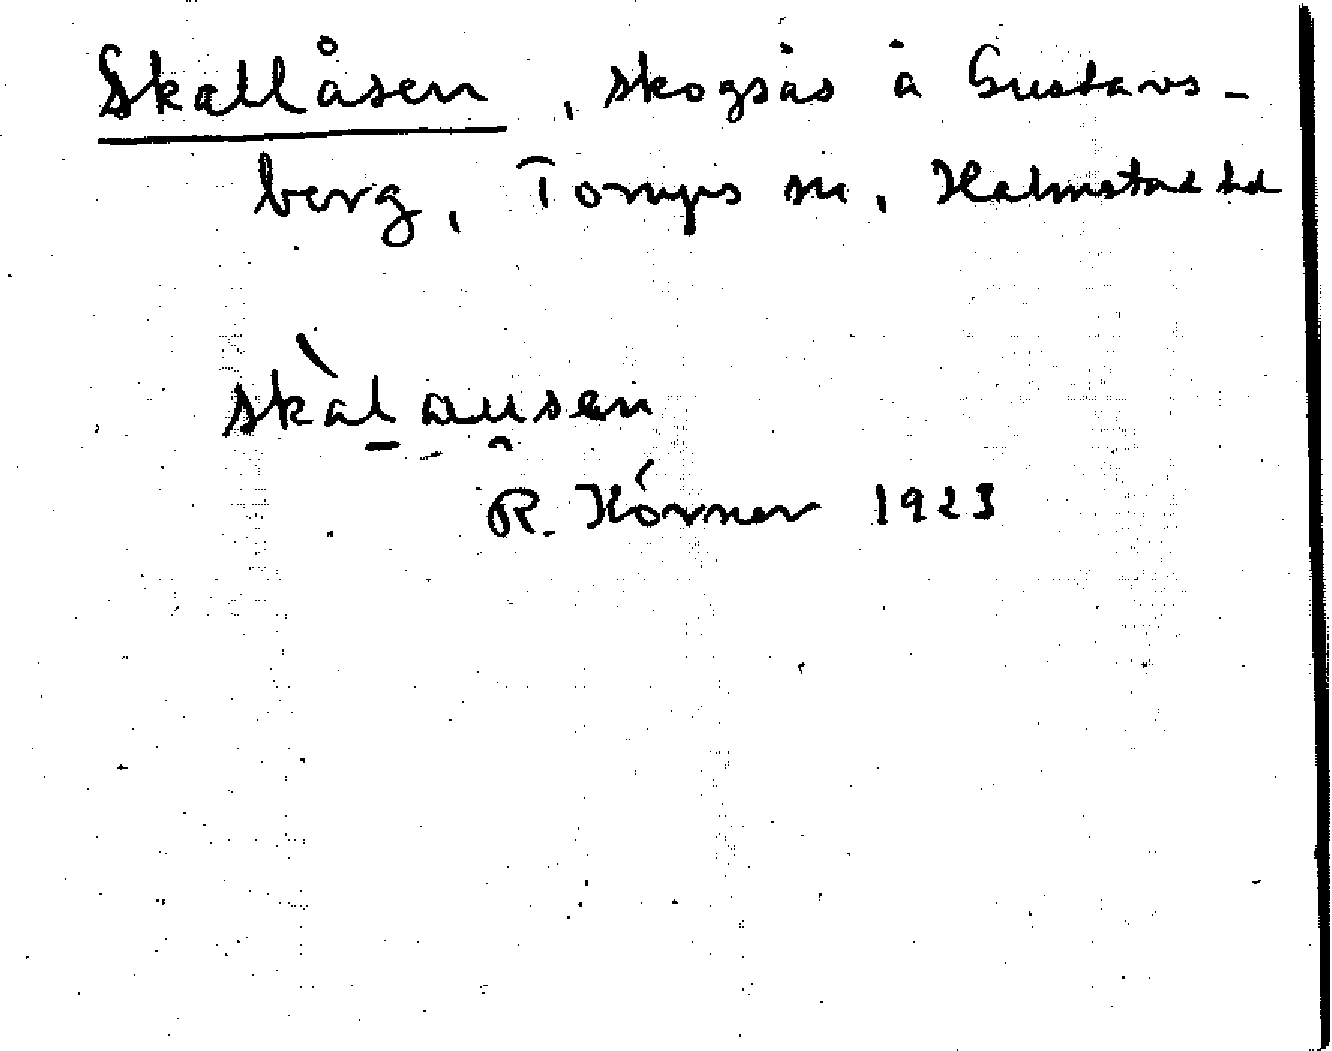 Skallåsen, skogsås å Gustavs-
berg, Tönnersjö sn, Halmstad hd
skàl ausen
R. Hörner 1923